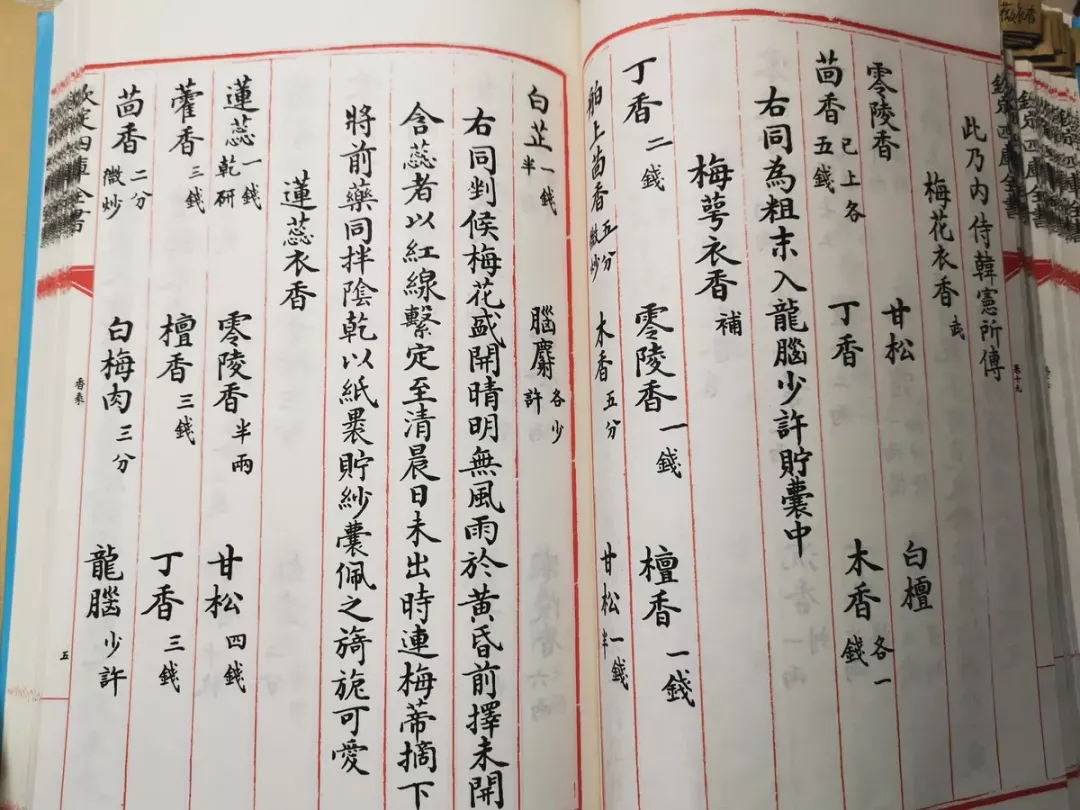 此乃內侍韓憲所傳
梅花衣香 武
零陵香 甘松 白檀
茴香 已上各五錢 丁香 木香 各一錢
右同為粗末入龍腦少許貯囊中
梅萼衣香 補
丁香 二錢 零陵香 一錢 檀香 一錢
舶上茴香 五分微炒 木香 五分 甘松 一錢半
白芷 一錢半 腦麝 各少許
右同剉候梅花盛開晴明無風雨於黃昏前擇未開
含蕊者以紅線繫定至清晨日未出時連梅蒂摘下
將前藥同拌陰乾以紙裹貯紗囊佩之旖旎可愛
蓮蕊衣香
蓮蕊 一錢乾研 零陵香 半兩 甘松 四錢
藿香 三錢 檀香 三錢 丁香 三錢
茴香 二分微炒 白梅肉 三分 龍腦 少許
欽定四庫全書
香乘
五
欽定四庫全書
卷十九